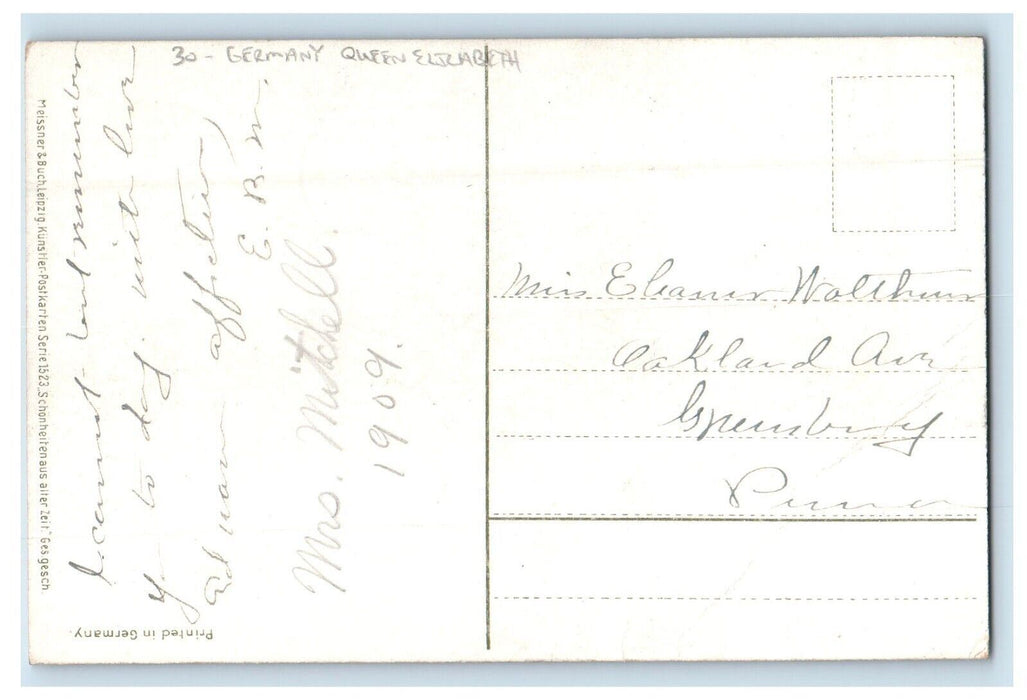 30 - GERMANY QUEEN ELIZABETH
I cannot but remember
you to day with love
and warm affection,
E. B. M.
Mrs. Mitchell.
1909.
Meissner & Buch, Leipzig. Künstler-Postkarten Serie 1523 „Schönheiten aus alter Zeit.“ Ges. gesch.
Printed in Germany.
Miss Eleanor
Oakland Ave
Greensburg
Penna